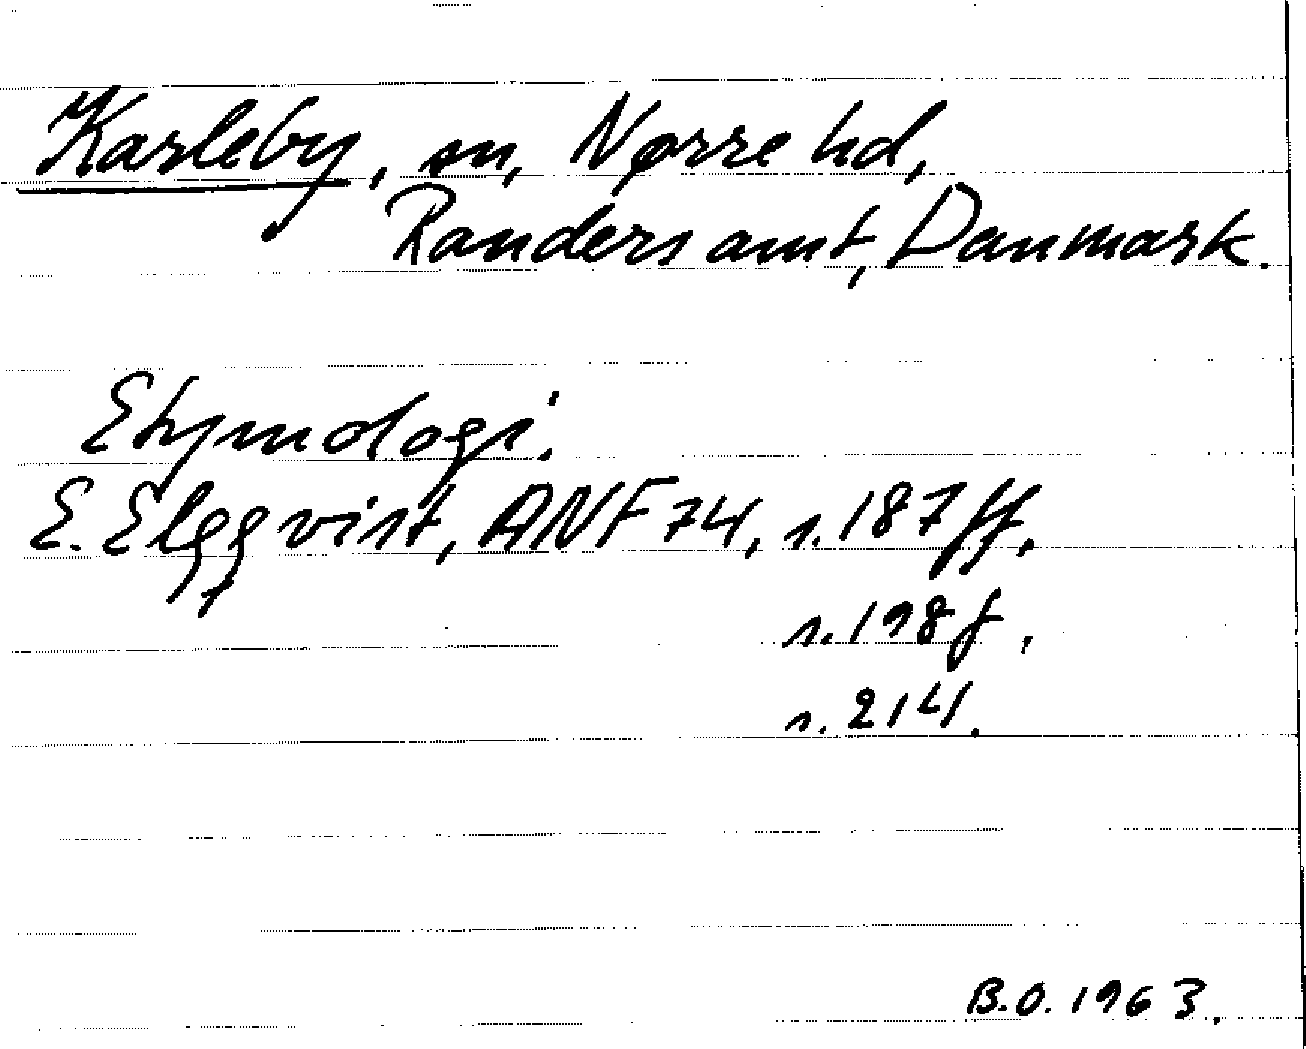 Karleby, sn, Nørre hd,
Randers amt, Danmark.
Etymologi.
E. Elgqvist, ANF 74, s. 187 ff,
s. 198 f,
s. 214.
B.O. 1963.